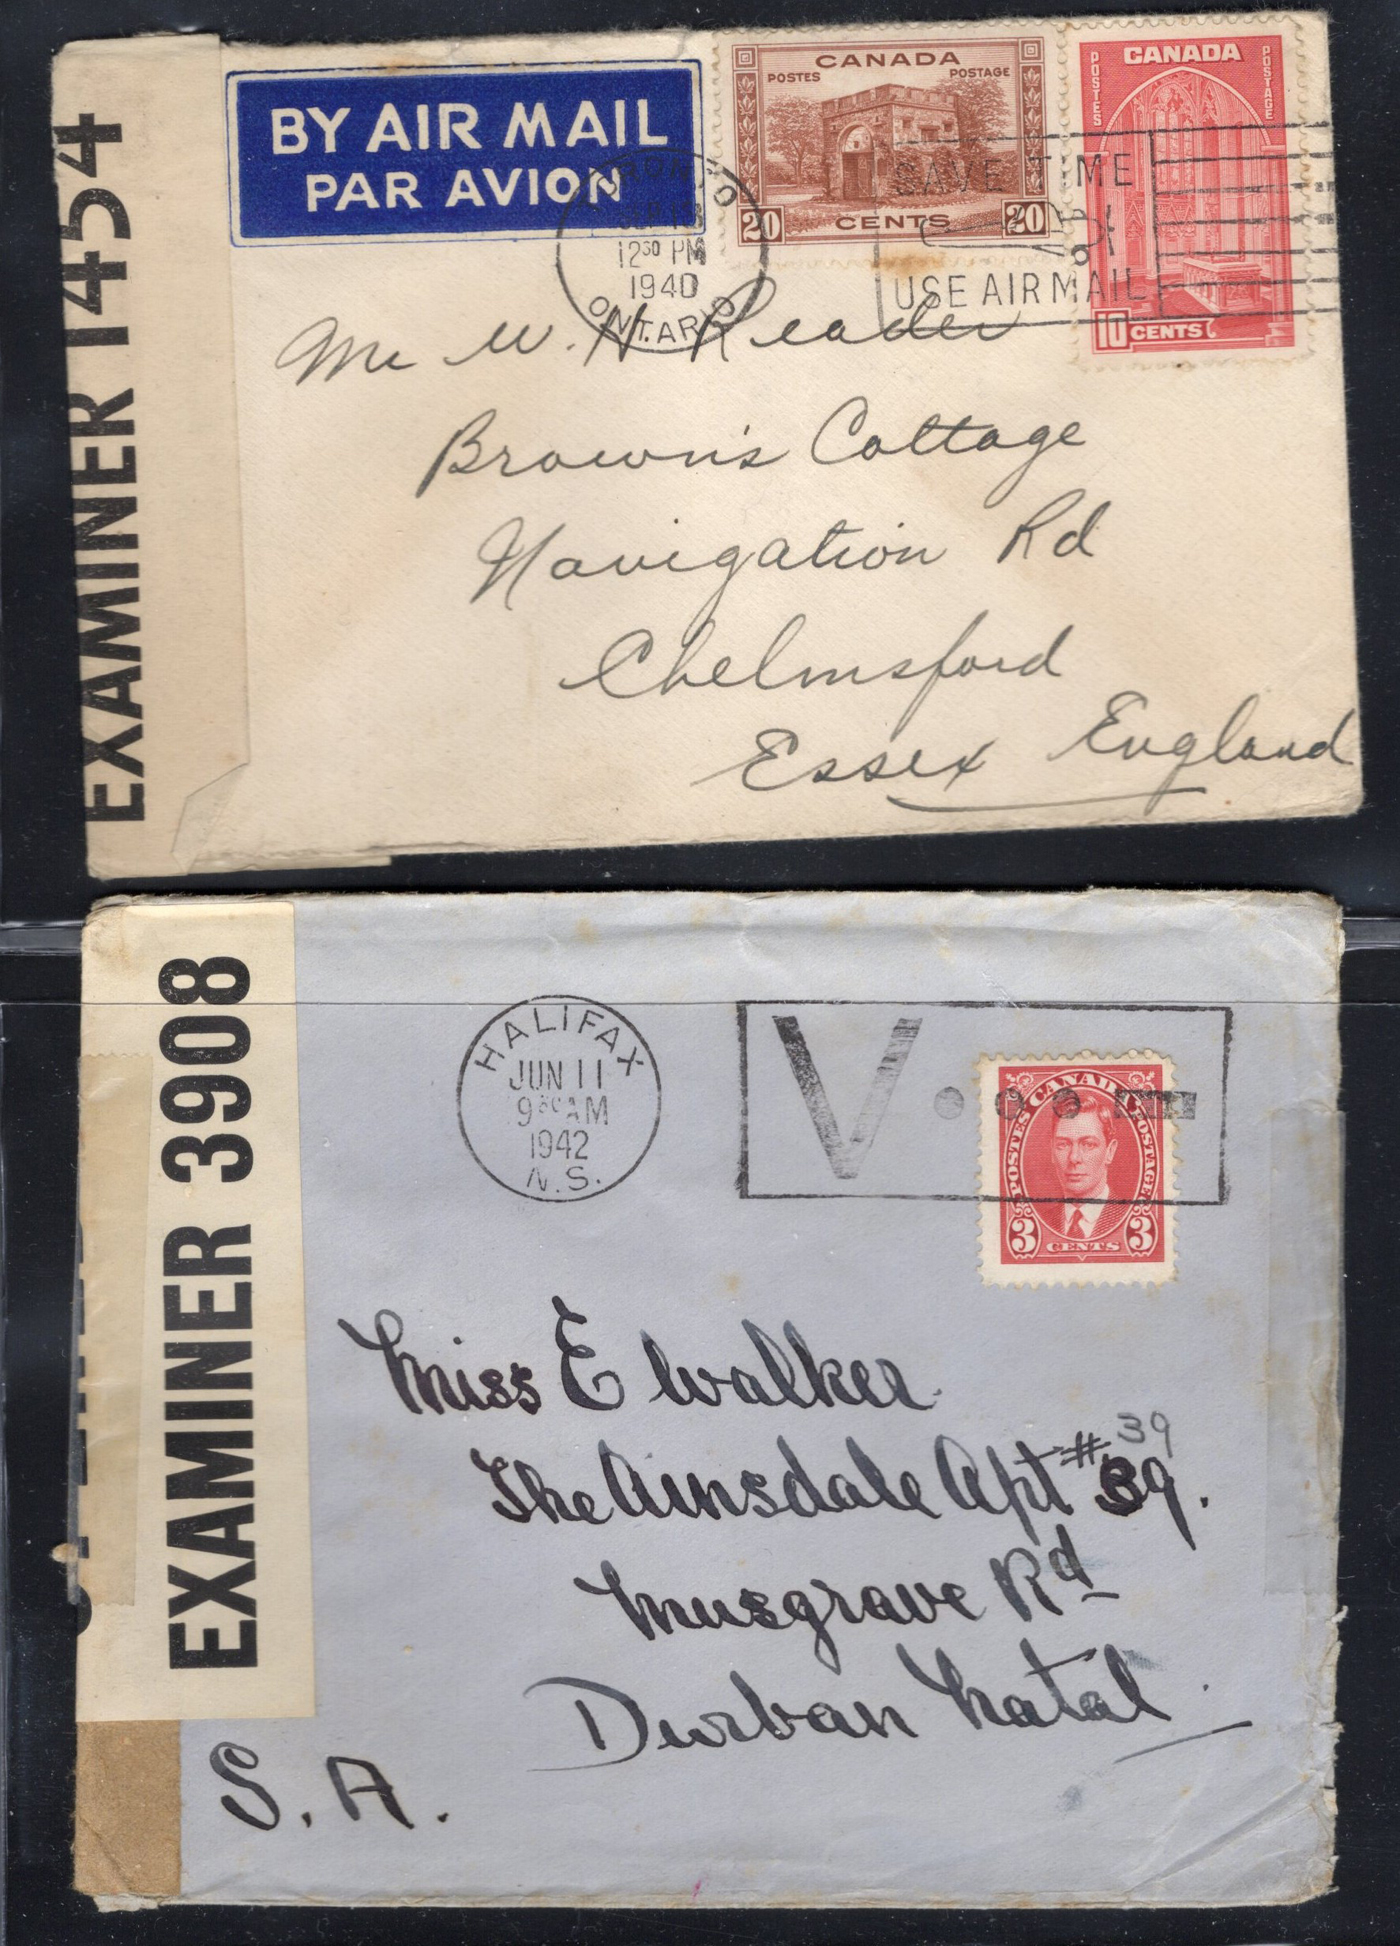 EXAMINER 1454
BY AIR MAIL
PAR AVION
CANADA
POSTES POSTAGE
20 CENTS 20
CANADA
POSTES
POSTAGE
10 CENTS
TORONTO
SEP 13
12 30 PM
1940
ONTARIO
SAVE TIME
USE AIR MAIL
Mr W. H. Reader
Brown's Cottage
Navigation Rd
Chelmsford
Essex England
EXAMINER 3908
HALIFAX
JUN 11
9 30 AM
1942
N.S.
V
POSTES CANADA POSTAGE
3 CENTS 3
Miss E Walker.
39
The Ainsdale Apt #39.
Musgrave Rd
Durban Natal.
S. A.